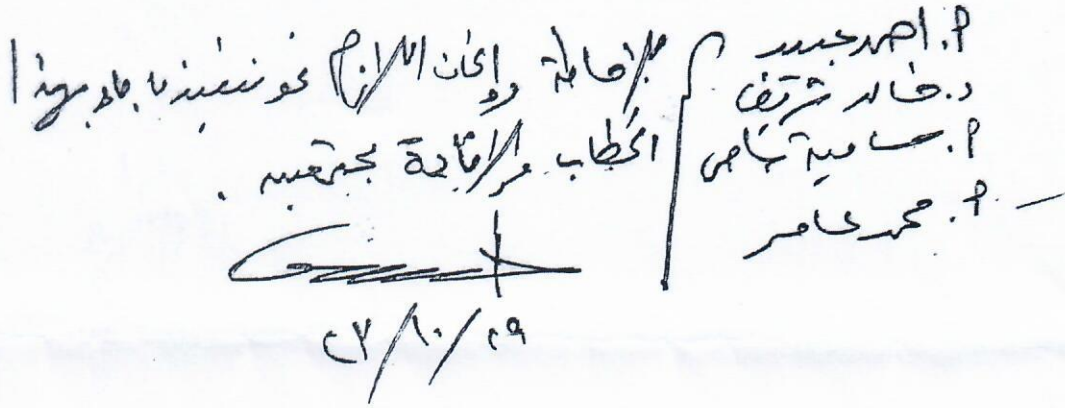 أ. احمد عبيد
د. خالد شريف
أ. سامية سامى
أ. محمد عامر
للإحاطة وإتخاذ اللازم نحو تنفيذ ما جاء بهذا
الخطاب والإفادة
٢٩/١٠/٢٧